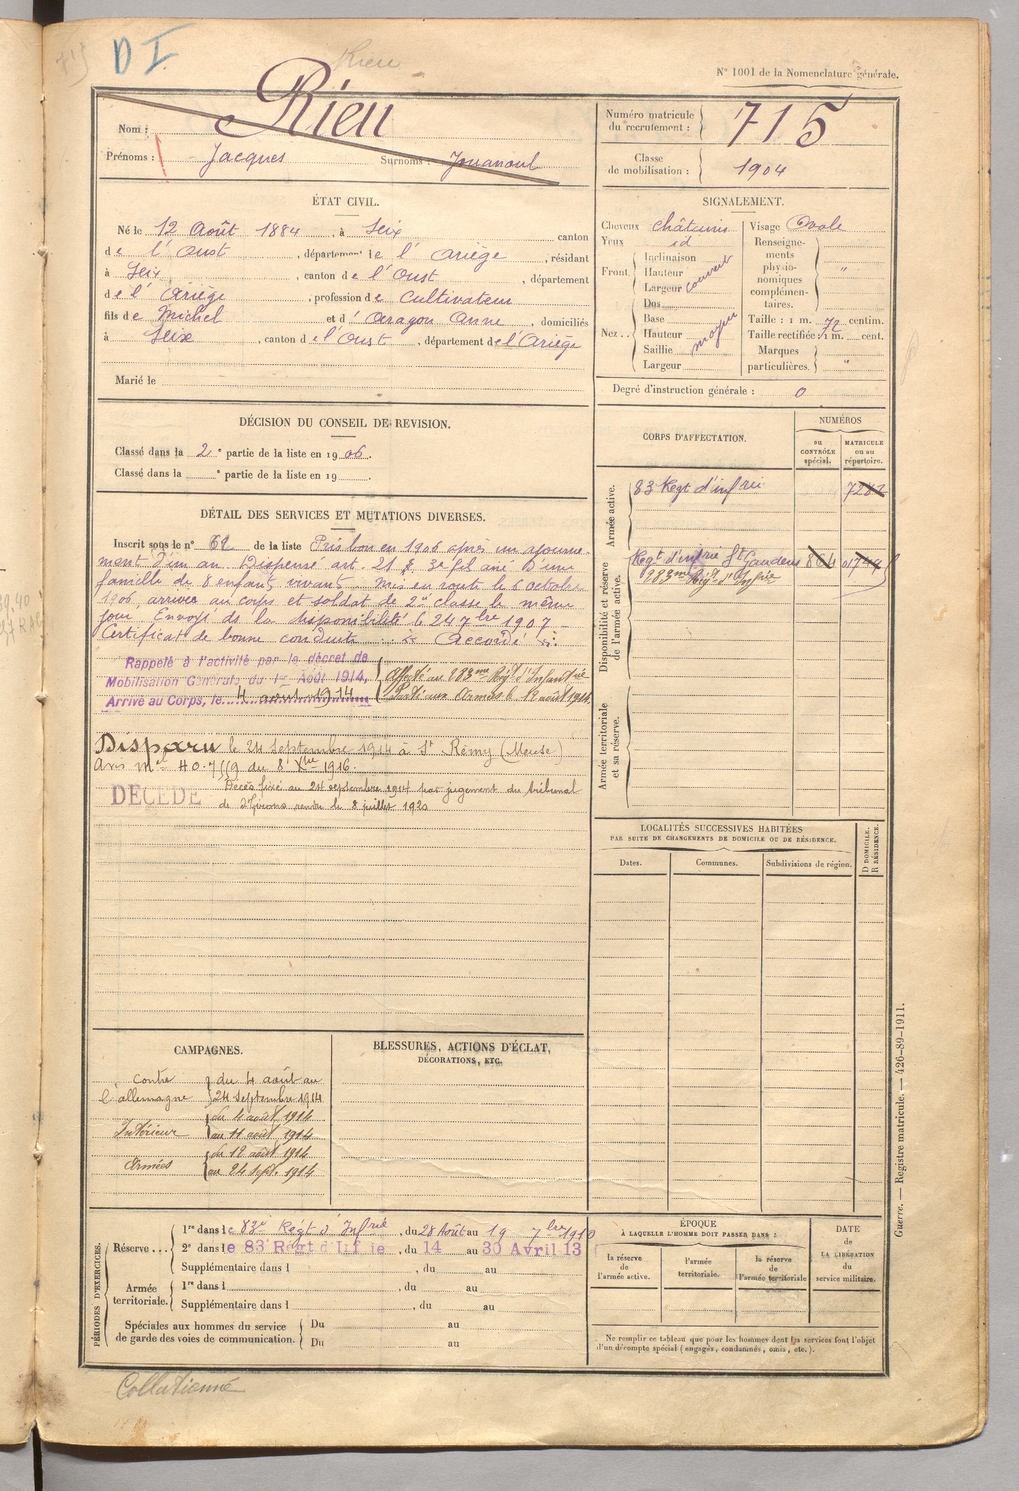 715
D I
Rieu
N° 1001 de la Nomenclature générale.
Nom : Rieu
Prénoms : Jacques Surnoms : Jouanoul
Numéro matricule du recrutement : 715
Classe de mobilisation : 1904
ÉTAT CIVIL.
Né le 12 Août 1884, à Seix canton
de l'Oust, département de l'Ariège, résidant
à Seix, canton de l'Oust, département
de l'Ariège, profession de Cultivateur
fils de Michel et d'Aragon Anne, domiciliés
à Seix, canton de l'Oust, département de l'Ariège
Marié le
SIGNALEMENT.
Cheveux châtains
Yeux id
Front. Inclinaison
Hauteur
Largeur couvert
Nez.. Dos
Base
Hauteur moyen
Saillie
Largeur
Visage Ovale
Renseignements physionomiques complémentaires. "
Taille : 1 m. 72 centim.
Taille rectifiée : 1 m. cent.
Marques particulières. "
Degré d'instruction générale : 0
DÉCISION DU CONSEIL DE REVISION.
Classé dans la 2e partie de la liste en 1906.
Classé dans la e partie de la liste en 19 .
CORPS D'AFFECTATION.
NUMÉROS
au CONTRÔLE spécial.
MATRICULE ou au répertoire.
Armée active.
83 Regt d'infrie
Disponibilité et réserve de l'armée active.
Regt d'infrie St Gaudens 864
283me Rgt d'Infrie
Armée territoriale et sa réserve.
DÉTAIL DES SERVICES ET MUTATIONS DIVERSES.
Inscrit sous le n° 62 de la liste Pris bon en 1906 après un ajourne-
ment d'un an. Dispensé art. 21 § 3e fils ainé d'une
famille de 8 enfants vivants Mis en route le 6 octobre
1906, arrivé au corps et soldat de 2e classe le même
jour. Envoyé ds la disponibilité le 24 7bre 1907 -
Certificat de bonne conduite : Accordé :
Rappelé à l'activité par le décret de
Mobilisation Générale du 1er Août 1914,
Arrivé au Corps, le 4 août 1914
Affecté au 283me Régt d'Infanterie
Parti aux Armées le 12 août 1914.
Disparu le 24 Septembre 1914 à St Rémy (Meuse)
Avis mel du 8 Xbre 1916.
DÉCÉDÉ
Décès fixé au 24 septembre 1914 par jugement du tribunal
de St Girons rendu le 8 juillet 1920
LOCALITÉS SUCCESSIVES HABITÉES
PAR SUITE DE CHANGEMENTS DE DOMICILE OU DE RÉSIDENCE.
Dates.
Communes.
Subdivisions de région.
D DOMICILE.
R RÉSIDENCE.
CAMPAGNES.
contre l'allemagne du 4 août au
24 septembre 1914
Intérieur du 4 août 1914
au 11 août 1914
Armées du 12 août 1914
au 24 sept. 1914
BLESSURES, ACTIONS D'ÉCLAT,
DÉCORATIONS, ETC.
PÉRIODES D'EXERCICES.
Réserve...
1re dans le 83e Régt d'Infrie, du 28 Août au 19 7bre 1910
2e dans le 83 Régt d'Inf ie, du 14 au 30 Avril 13
Supplémentaire dans l , du au
Armée territoriale.
1re dans l , du au
Supplémentaire dans l , du au
Spéciales aux hommes du service
de garde des voies de communication.
Du au
Du au
ÉPOQUE
À LAQUELLE L'HOMME DOIT PASSER DANS :
la réserve de l'armée active.
l'armée territoriale.
la réserve de l'armée territoriale
DATE de LA LIBÉRATION du service militaire.
Ne remplir ce tableau que pour les hommes dont les services font l'objet
d'un décompte spécial (engagés, condamnés, omis, etc.).
Guerre. — Registre matricule. — 426-89-1911.
Collationné